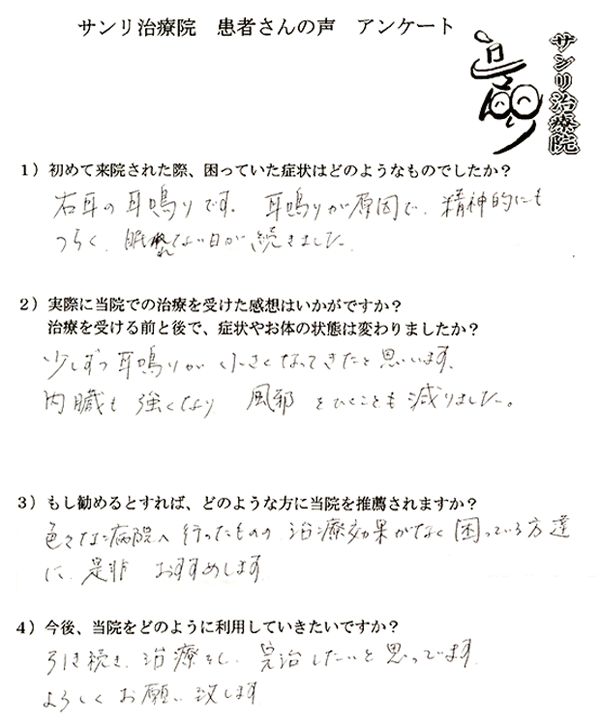 サンリ治療院　患者さんの声　アンケート
サンリ治療院
1）初めて来院された際、困っていた症状はどのようなものでしたか？
右耳の耳鳴りです。耳鳴りが原因で、精神的にも
つらく、眠れない日が続きました。
2）実際に当院での治療を受けた感想はいかがですか？
治療を受ける前と後で、症状やお体の状態は変わりましたか？
少しずつ耳鳴りが小さくなってきたと思います。
内臓も強くなり　風邪をひくことも減りました。
3）もし勧めるとすれば、どのような方に当院を推薦されますか？
色々な病院へ行ったものの治療効果がなく困っている方達
に、是非　おすすめします
4）今後、当院をどのように利用していきたいですか？
引き続き、治療をし、完治したいと思っています。
よろしくお願い致します